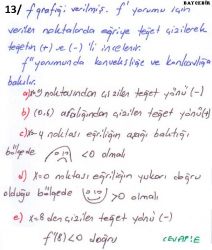 BAYÇEBİR
13/ f grafiği verilmiş. f' yorumu için
verilen noktalarda eğriye teğet çizilerek
teğetin (+) ve (-) 'li incelenir.
f'' yorumunda konveksliğe ve konkavlığa
bakılır.
a) noktasından çizilen teğet yönü (-)
b) (0,6) aralığından çizilen teğet yönü (+)
c) x=-4 noktası eğriliğin aşağı baktığı
bölgede <0 olmalı
d) x=0 noktası eğriliğin yukarı doğru
olduğu bölgede >0 olmalı
e) x=8 den çizilen teğet yönü (-)
f'(8)<0 doğru
CEVAP: E